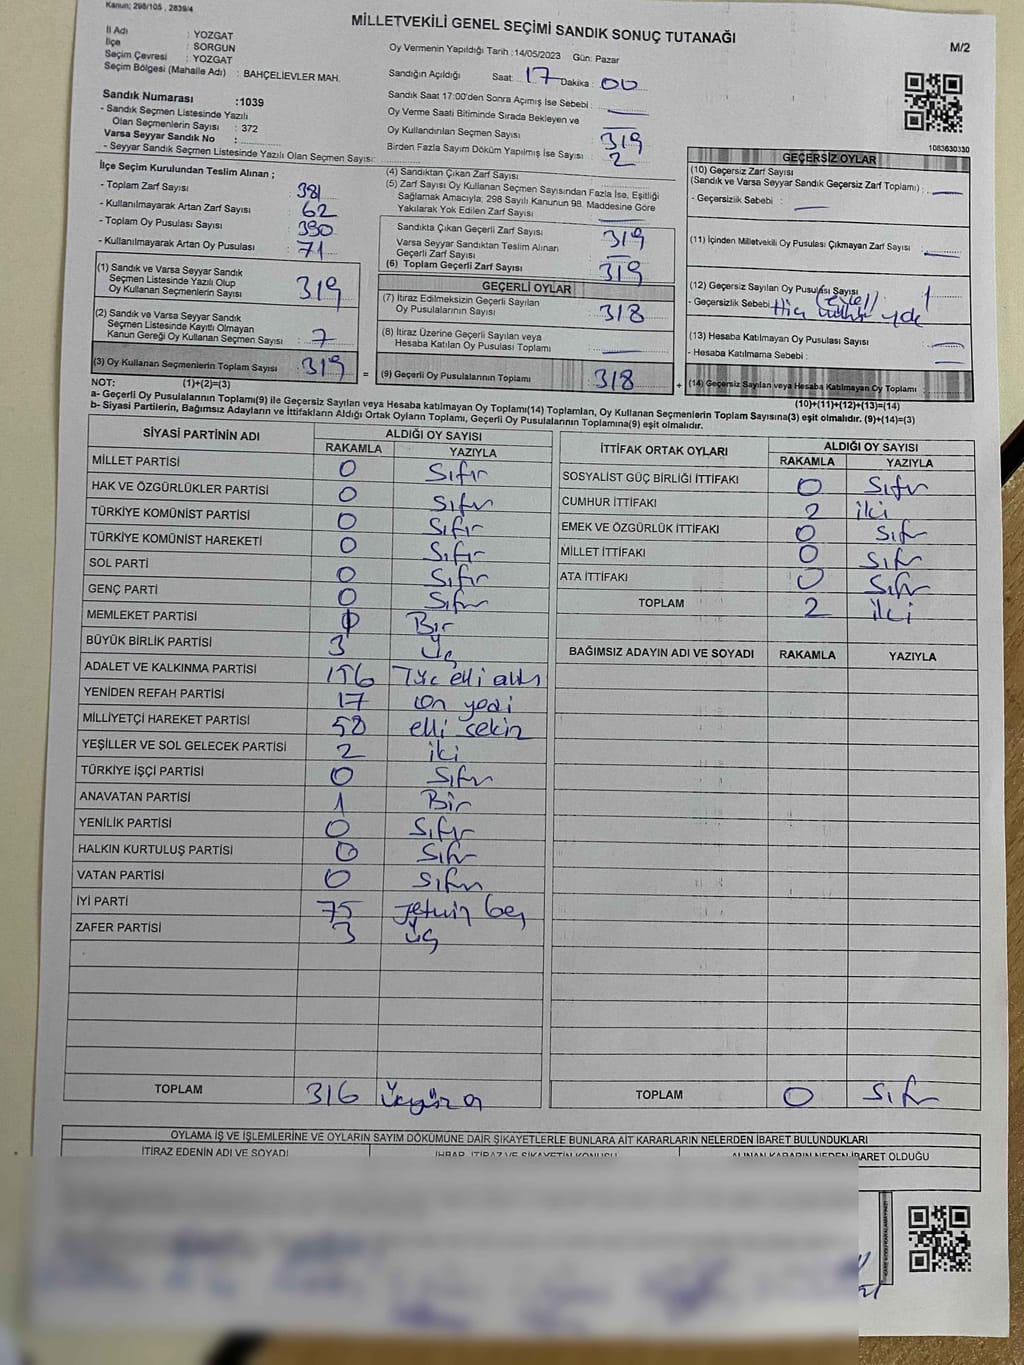 Kanun; 298/105 , 2839/4
MİLLETVEKİLİ GENEL SEÇİMİ SANDIK SONUÇ TUTANAĞI
M/2
İl Adı : YOZGAT
İlçe : SORGUN
Seçim Çevresi : YOZGAT
Seçim Bölgesi (Mahalle Adı) : BAHÇELİEVLER MAH.
Sandık Numarası :1039
- Sandık Seçmen Listesinde Yazılı
Olan Seçmenlerin Sayısı : 372
Varsa Seyyar Sandık No :
- Seyyar Sandık Seçmen Listesinde Yazılı Olan Seçmen Sayısı:
Oy Vermenin Yapıldığı Tarih :14/05/2023 Gün: Pazar
Sandığın Açıldığı Saat: 17 Dakika : 00
Sandık Saat 17:00'den Sonra Açımış İse Sebebi :
Oy Verme Saati Bitiminde Sırada Bekleyen ve
Oy Kullandırılan Seçmen Sayısı : 319
Birden Fazla Sayım Döküm Yapılmış İse Sayısı : 2
1083630330
İlçe Seçim Kurulundan Teslim Alınan ;
- Toplam Zarf Sayısı : 381
- Kullanılmayarak Artan Zarf Sayısı : 62
- Toplam Oy Pusulası Sayısı : 390
- Kullanılmayarak Artan Oy Pusulası : 71
(1) Sandık ve Varsa Seyyar Sandık
Seçmen Listesinde Yazılı Olup
Oy Kullanan Seçmenlerin Sayısı : 319
(2) Sandık ve Varsa Seyyar Sandık
Seçmen Listesinde Kayıtlı Olmayan
Kanun Gereği Oy Kullanan Seçmen Sayısı : 7
(3) Oy Kullanan Seçmenlerin Toplam Sayısı : 319
(4) Sandıktan Çıkan Zarf Sayısı :
(5) Zarf Sayısı Oy Kullanan Seçmen Sayısından Fazla İse, Eşitliği
Sağlamak Amacıyla; 298 Sayılı Kanunun 98. Maddesine Göre
Yakılarak Yok Edilen Zarf Sayısı :
Sandıkta Çıkan Geçerli Zarf Sayısı : 319
Varsa Seyyar Sandıktan Teslim Alınan
Geçerli Zarf Sayısı :
(6) Toplam Geçerli Zarf Sayısı : 319
GEÇERLİ OYLAR
(7) İtiraz Edilmeksizin Geçerli Sayılan
Oy Pusulalarının Sayısı : 318
(8) İtiraz Üzerine Geçerli Sayılan veya
Hesaba Katılan Oy Pusulası Toplamı :
= (9) Geçerli Oy Pusulalarının Toplamı : 318
GEÇERSİZ OYLAR
(10) Geçersiz Zarf Sayısı
(Sandık ve Varsa Seyyar Sandık Geçersiz Zarf Toplamı) :
- Geçersizlik Sebebi :
(11) İçinden Milletvekili Oy Pusulası Çıkmayan Zarf Sayısı :
(12) Geçersiz Sayılan Oy Pusulası Sayısı : 1
- Geçersizlik Sebebi : Hiç
(13) Hesaba Katılmayan Oy Pusulası Sayısı :
- Hesaba Katılmama Sebebi :
+ (14) Geçersiz Sayılan veya Hesaba Katılmayan Oy Toplamı :
NOT: (1)+(2)=(3)
(10)+(11)+(12)+(13)=(14)
a- Geçerli Oy Pusulalarının Toplamı(9) ile Geçersiz Sayılan veya Hesaba katılmayan Oy Toplamı(14) Toplamları, Oy Kullanan Seçmenlerin Toplam Sayısına(3) eşit olmalıdır. (9)+(14)=(3)
b- Siyasi Partilerin, Bağımsız Adayların ve İttifakların Aldığı Ortak Oyların Toplamı, Geçerli Oy Pusulalarının Toplamına(9) eşit olmalıdır.
SİYASİ PARTİNİN ADI ALDIĞI OY SAYISI
RAKAMLA YAZIYLA
MİLLET PARTİSİ 0 Sıfır
HAK VE ÖZGÜRLÜKLER PARTİSİ 0 Sıfır
TÜRKİYE KOMÜNİST PARTİSİ 0 Sıfır
TÜRKİYE KOMÜNİST HAREKETİ 0 Sıfır
SOL PARTİ 0 Sıfır
GENÇ PARTİ 0 Sıfır
MEMLEKET PARTİSİ 1 Bir
BÜYÜK BİRLİK PARTİSİ 3 Üç
ADALET VE KALKINMA PARTİSİ 156 Yüz elli altı
YENİDEN REFAH PARTİSİ 17 on yedi
MİLLİYETÇİ HAREKET PARTİSİ 58 elli sekiz
YEŞİLLER VE SOL GELECEK PARTİSİ 2 iki
TÜRKİYE İŞÇİ PARTİSİ 0 Sıfır
ANAVATAN PARTİSİ 1 Bir
YENİLİK PARTİSİ 0 Sıfır
HALKIN KURTULUŞ PARTİSİ 0 Sıfır
VATAN PARTİSİ 0 Sıfır
İYİ PARTİ 75 yetmiş beş
ZAFER PARTİSİ 3 üç
TOPLAM 316
İTTİFAK ORTAK OYLARI ALDIĞI OY SAYISI
RAKAMLA YAZIYLA
SOSYALİST GÜÇ BİRLİĞİ İTTİFAKI 0 Sıfır
CUMHUR İTTİFAKI 2 iki
EMEK VE ÖZGÜRLÜK İTTİFAKI 0 Sıfır
MİLLET İTTİFAKI 0 Sıfır
ATA İTTİFAKI 0 Sıfır
TOPLAM 2 iki
BAĞIMSIZ ADAYIN ADI VE SOYADI RAKAMLA YAZIYLA
TOPLAM 0 Sıfır
OYLAMA İŞ VE İŞLEMLERİNE VE OYLARIN SAYIM DÖKÜMÜNE DAİR ŞİKAYETLERLE BUNLARA AİT KARARLARIN NELERDEN İBARET BULUNDUKLARI
İTİRAZ EDENİN ADI VE SOYADI İHBAR, İTİRAZ VE ŞİKAYETİN KONUSU ALINAN KARARIN NEDEN İBARET OLDUĞU